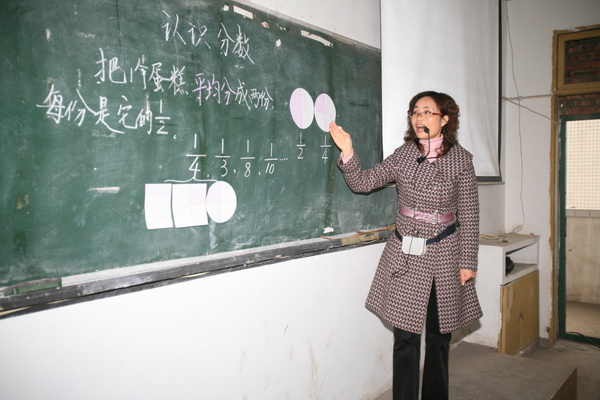 认识分数
把1个蛋糕平均分成两份,
每份是它的1/2。
1/4、1/3、1/8、1/10……
1/2 1/4